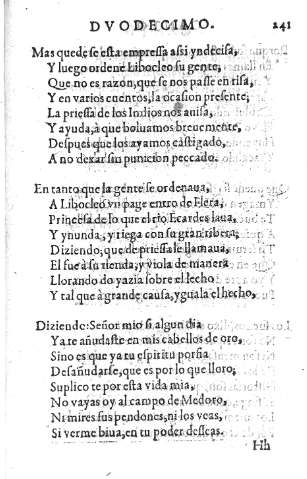 DVODECIMO. 241
Mas quede se esta empressa assi yndecisa,
Y luego ordene Libocleo su gente,
Que no es razon, que se nos passe en risa,
Y en varios cuentos, la ocasion presente,
La priessa de los Indios nos auisa,
Y ayuda, à que boluamos breuemente,
Despues que los ayamos castigado,
A no dexar sin punicion peccado.
En tanto que la gente se ordenaua,
A Libocleo vn page entro de Flera,
Princesa de lo que el rio Ecardes laua,
Y ynunda, y riega con su gran ribera,
Diziendo, que de priessa le llamaua,
El fue à su tienda, y viola de manera
Llorando do yazia sobre el lecho
Y tal que à grande causa, yguala el hecho,
Diziende: Señor mio si algun dia
Ya te añudaste en mis cabellos de oro,
Sino es que ya tu espiritu porfia
Desañudarse, que es por lo que lloro,
Suplico te por esta vida mia,
No vayas oy al campo de Medoro,
Ni mires sus pendones, ni los veas,
Si verme biua, en tu poder desseas.
Hh